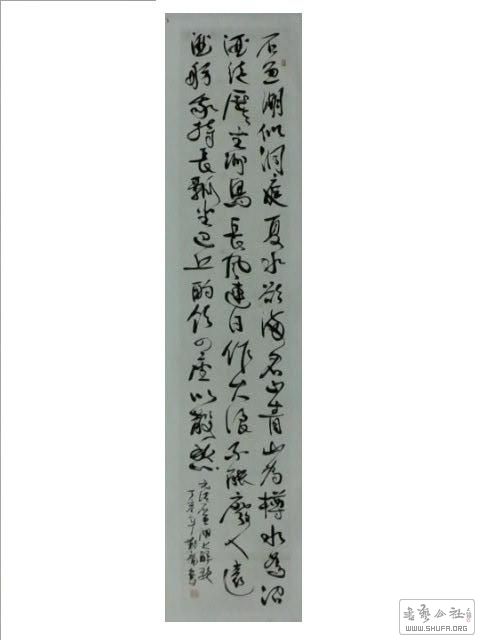 石魚湖似洞庭夏水欲滿君山青山為樽水為沼
酒徒歷々坐洲島長風連日作大浪不能廢人運
酒舫我持長瓢坐巴丘酌飲四座以散愁
元结石魚湖上醉歌
丁亥年
书艺公社
WWW.SHUFA.ORG